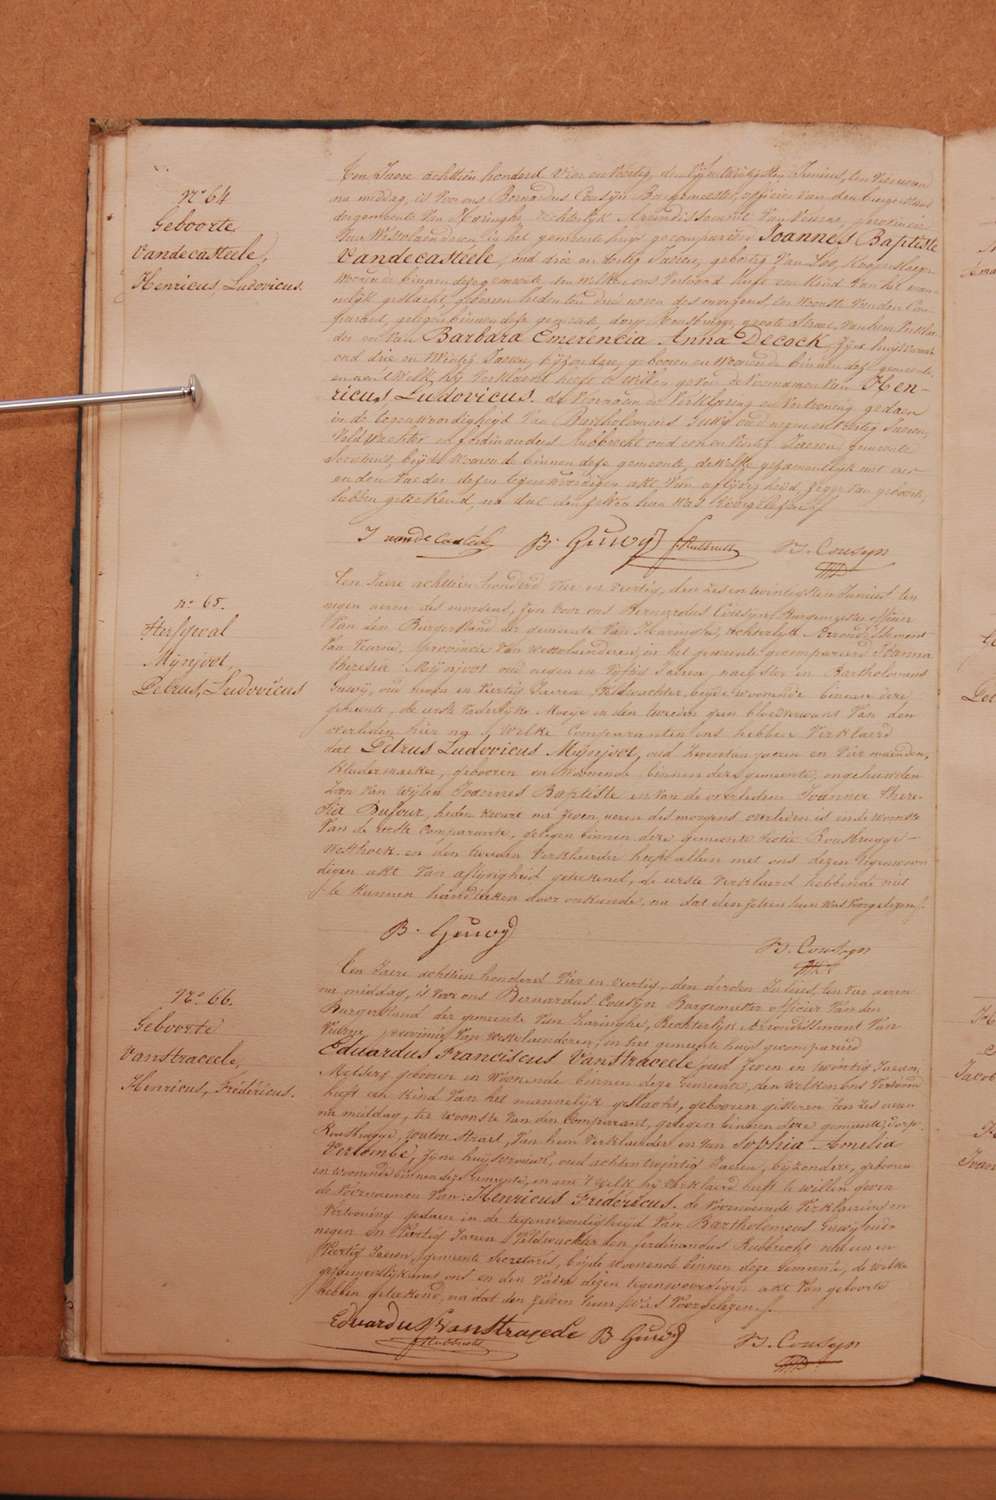 N.o 64
Geboorte
Vandecasteele,
Henricus, Ludovicus.
Den Jaere achttien honderd vier en Veertig, den Junius, ten vier uren
na middag, is voor ons Bernardus Cousijn Burgemeester, officier van den burgerstand
der gemeente Van Haringhe, rechterlijk Arrondissement Van Veurne, provincie
Van Westvlaenderen, in het gemeente huys gecompareerd Joannes Baptiste
Vandecasteele, oud drie en dertig Jaeren, geboortig Van Loo,
Woonende binnen deze gemeente, den Welken ons Vertoond heeft een kind Van het man-
nelijk geslacht, geboren heden ten drie uren des morgens, ter Woonste Van den Com-
parant, gelegen binnen deze gemeente, dorp Rousbrugge, groote Straet, Van hem Verklae-
der en Van Barbara Emerencia Anna Decock, zijne huijsvrouw
oud drie en Twintig Jaeren, bijzondere, geboren en Woonende binnen deze gemeente,
en aen 't Welk hij Verklaerd heeft te willen geven de Voornaemen Van Hen-
ricus Ludovicus. de Voorenstaende Verklaering en Vertooning gedaen
in de tegenwoordigheyd Van Bartholomeus Guwij oud negen en Veertig Jaeren,
Veldwachter en ferdinandus Rubbrecht oud een en Veertig Jaeren, gemeente
Secretaris, beijde Woonende binnen deze gemeente, de Welke gezamentlijk met ons
en den Vaeder dezen tegenwoordigen akt Van geboorte,
hebben geteekend, na dat den zelven hun Was Voorgelezen.
J vande Casteele B. Guwy f. Rubbrecht B. Cousyn
n.o 65.
Sterfgeval
Mijnjoot,
Petrus, Ludovicus
Den Jaere achttien honderd vier en veertig, den zes en twintigsten Junius, ten
negen uren des morgens, zijn voor ons Bernardus Cousijn Burgemeester officier
Van den Burgerstand der gemeente Van Haringhe, Rechterlijk Arrondissement
Van Veurne, provincie Van Westvlaenderen, in het gemeente huys gecompareerd Joanna
Theresia Mijnjoot oud negen en Vijftig Jaeren, naeijster en Bartholomeus
Guwij, oud negen en Veertig Jaeren, Veldwachter, beijde Woonende binnen deze
gemeente, de eerste Vaderlijke Moeije en den tweeden geen bloedverwant Van den
overleden hier na, Welke Comparanten ons hebben Verklaerd
dat Petrus Ludovicus Mijnjoot, oud zeventien jaeren en Vier maenden,
kleermaeker, gebooren en woonende binnen deze gemeente, ongehuwden
Zoon Van Wijlen Joannes Baptiste en Van de overledene Joanna There-
sia Dufour, heden kwart na zeven uren des morgens overleden is in de woonste
Van de eerste Comparante, gelegen binnen deze gemeente Sectie Rousbrugge
Westhoek. en den tweeden Verklaerder heeft alleen met ons dezen tegenwoor-
digen akt Van aflijvigheid geteekend, de eerste Verklaerd hebbende niet
te kunnen handteeken door onkunde, na dat den zelven hun Was Voorgelezen.
B. Guwy B. Cousyn
N.o 66.
Geboorte
Vanstraceele,
Henricus, Frédéricus.
Den Jaere achttien honderd Vier en Veertig, den derden Julius, ten vier uren
na middag, is voor ons Bernardus Cousijn Burgemeester officier Van den
Burgerstand der gemeente Van Haringhe, Rechterlijk Arrondissement Van
Veurne, provincie Van Westvlaenderen, in het gemeente huys gecompareerd
Eduardus Franciscus Vanstraceele, oud zeven en twintig Jaeren,
Metser, geboren en Woonende binnen deze Gemeente, den welken ons Vertoond
heeft een kind Van het mannelijk geslacht, gebooren gisteren ten zes uren
na middag, ter woonste Van den Comparant, gelegen binnen deze gemeente, dorp
Rousbrugge, Straet, Van hem Verklaerder en Van Sophia Amelia
Vercombe, zijne huijsvrouwe, oud acht en twintig Jaeren, bijzondere, gebooren
en woonende binnen deze Gemeente, en aen 't Welk hij Verklaerd heeft te willen geven
de Voornaemen Van Henricus Fredéricus. de Voornoemde Verklaering en
Vertooning gedaen in de tegenwoordigheijd Van Bartholomeus Guwij oud
negen en Veertig Jaeren Veldwachter en ferdinandus Rubbrecht oud een en
Veertig Jaeren, gemeente Secretaris, beijde Woonende binnen deze Gemeente, de welke
gezamentlijk met ons en den Vader dezen tegenwoordigen akt Van geboorte
hebben geteekend, na dat den zelven hun Was Voorgelezen.
Eduardus Vanstraceele B Guwy B. Cousyn
f Rubbrecht